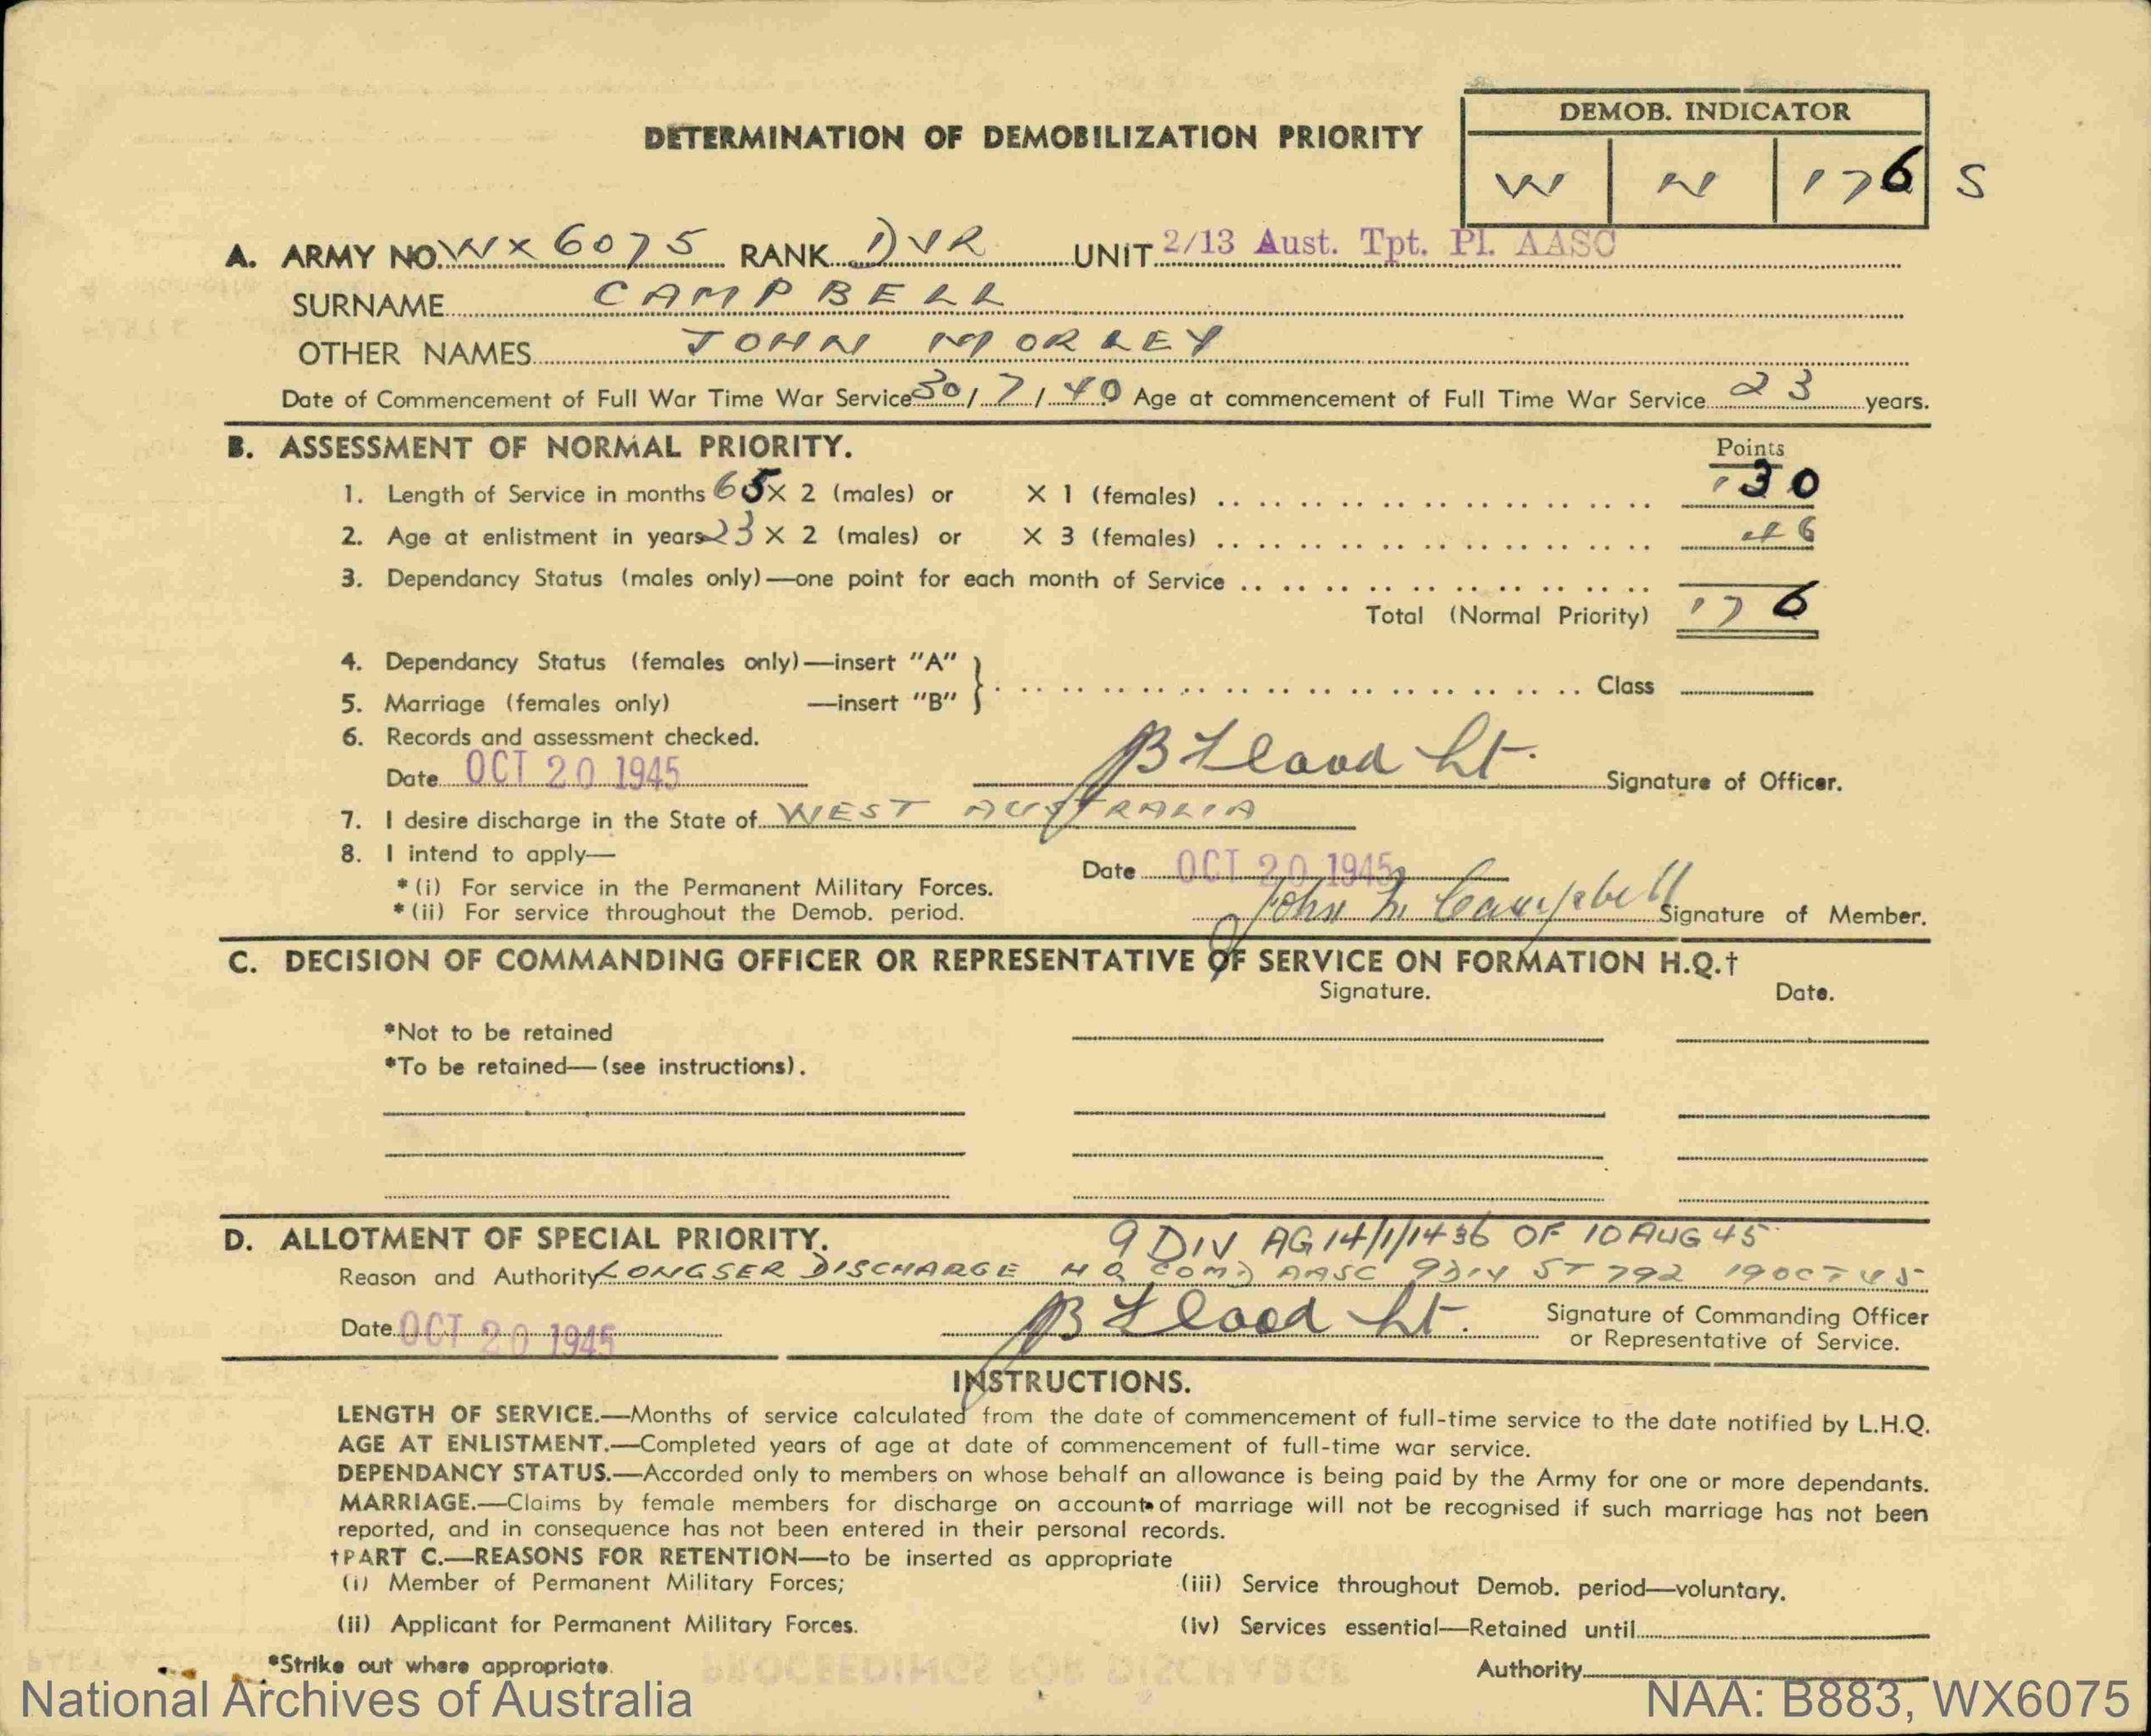 DEMOB. INDICATOR
DETERMINATION OF DEMOBILIZATION PRIORITY
W N 176 S
A. ARMY NO. WX6075 RANK DVR UNIT 2/13 Aust. Tpt. Pl. AASC
SURNAME CAMPBELL
OTHER NAMES JOHN MORLEY
Date of Commencement of Full War Time War Service 30/7/40 Age at commencement of Full Time War Service 23 years.
B. ASSESSMENT OF NORMAL PRIORITY. Points
1. Length of Service in months 65 X 2 (males) or X 1 (females) 130
2. Age at enlistment in years 23 X 2 (males) or X 3 (females) 46
3. Dependancy Status (males only)—one point for each month of Service
Total (Normal Priority) 176
4. Dependancy Status (females only)—insert "A"
5. Marriage (females only) —insert "B" } Class
6. Records and assessment checked.
Date OCT 20 1945 Lt. Signature of Officer.
7. I desire discharge in the State of WEST AUSTRALIA
8. I intend to apply— Date OCT 20 1945
*(i) For service in the Permanent Military Forces.
*(ii) For service throughout the Demob. period. John M Campbell Signature of Member.
C. DECISION OF COMMANDING OFFICER OR REPRESENTATIVE OF SERVICE ON FORMATION H.Q.†
Signature. Date.
*Not to be retained
*To be retained—(see instructions).
D. ALLOTMENT OF SPECIAL PRIORITY. 9 DIV AG 14/1/1436 OF 10 AUG 45
Reason and Authority LONGSER DISCHARGE HQ COMD AASC 9 DIV ST 792 19 OCT 45
Date OCT 20 1945 Lt. Signature of Commanding Officer
or Representative of Service.
INSTRUCTIONS.
LENGTH OF SERVICE.—Months of service calculated from the date of commencement of full-time service to the date notified by L.H.Q.
AGE AT ENLISTMENT.—Completed years of age at date of commencement of full-time war service.
DEPENDANCY STATUS.—Accorded only to members on whose behalf an allowance is being paid by the Army for one or more dependants.
MARRIAGE.—Claims by female members for discharge on account of marriage will not be recognised if such marriage has not been
reported, and in consequence has not been entered in their personal records.
†PART C.—REASONS FOR RETENTION—to be inserted as appropriate
(i) Member of Permanent Military Forces; (iii) Service throughout Demob. period—voluntary.
(ii) Applicant for Permanent Military Forces. (iv) Services essential—Retained until
*Strike out where appropriate. Authority
National Archives of Australia NAA: B883, WX6075